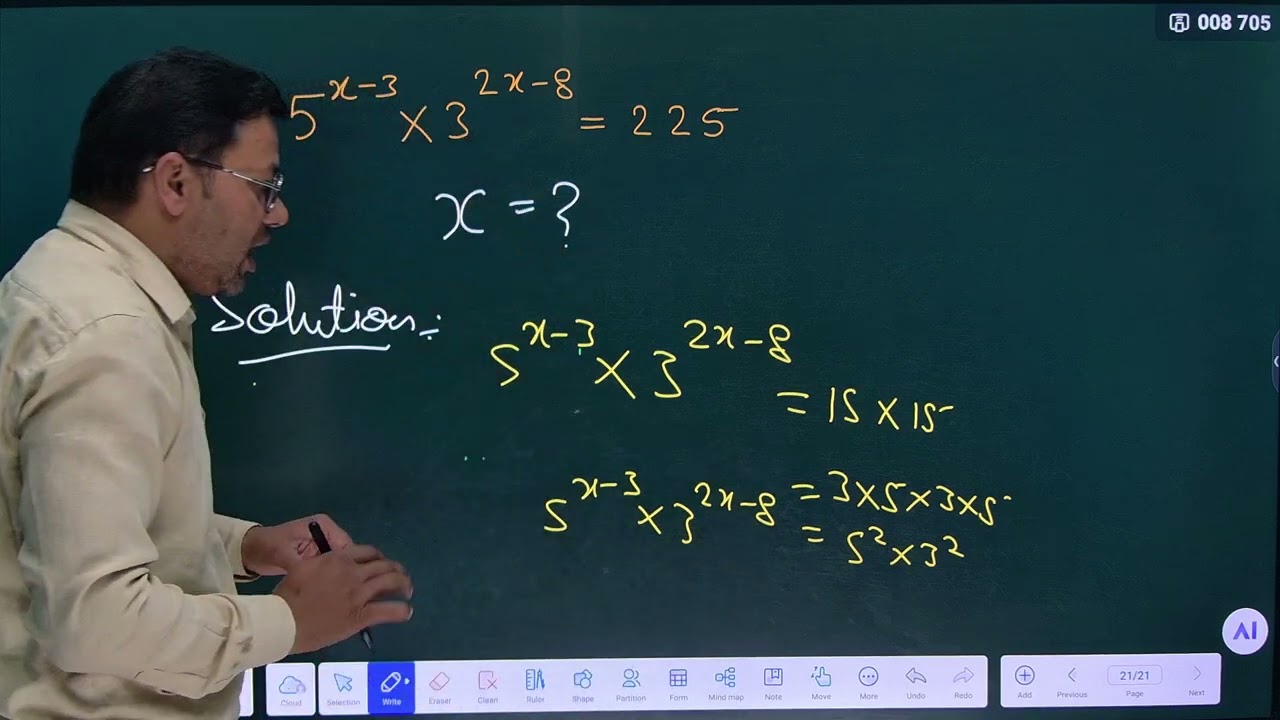 008 705
5^{x-3} × 3^{2x-8} = 225
x = ?
Solution:
5^{x-3} × 3^{2x-8}
= 15 × 15
5^{x-3} × 3^{2x-8} = 3×5×3×5
= 5² × 3²
AI
Cloud Selection Write Eraser Clean Ruler Shape Partition Form Mind map Note Move More Undo Redo Add Previous 21/21 Page Next